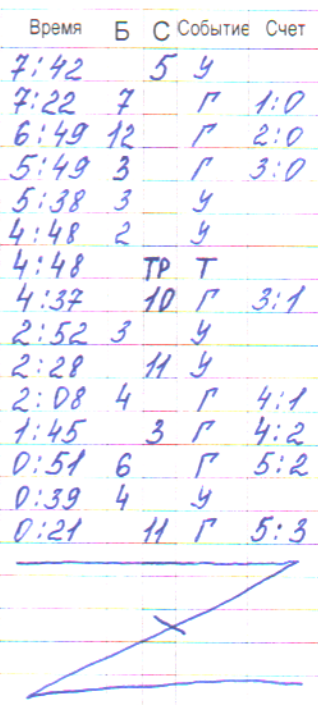 Время Б С Событие Счет
7:42 5 У
7:22 7 Г 1:0
6:49 12 Г 2:0
5:49 3 Г 3:0
5:38 3 У
4:48 2 У
4:48 ТР Т
4:37 10 Г 3:1
2:52 3 У
2:28 11 У
2:08 4 Г 4:1
1:45 3 Г 4:2
0:51 6 Г 5:2
0:39 4 У
0:21 11 Г 5:3